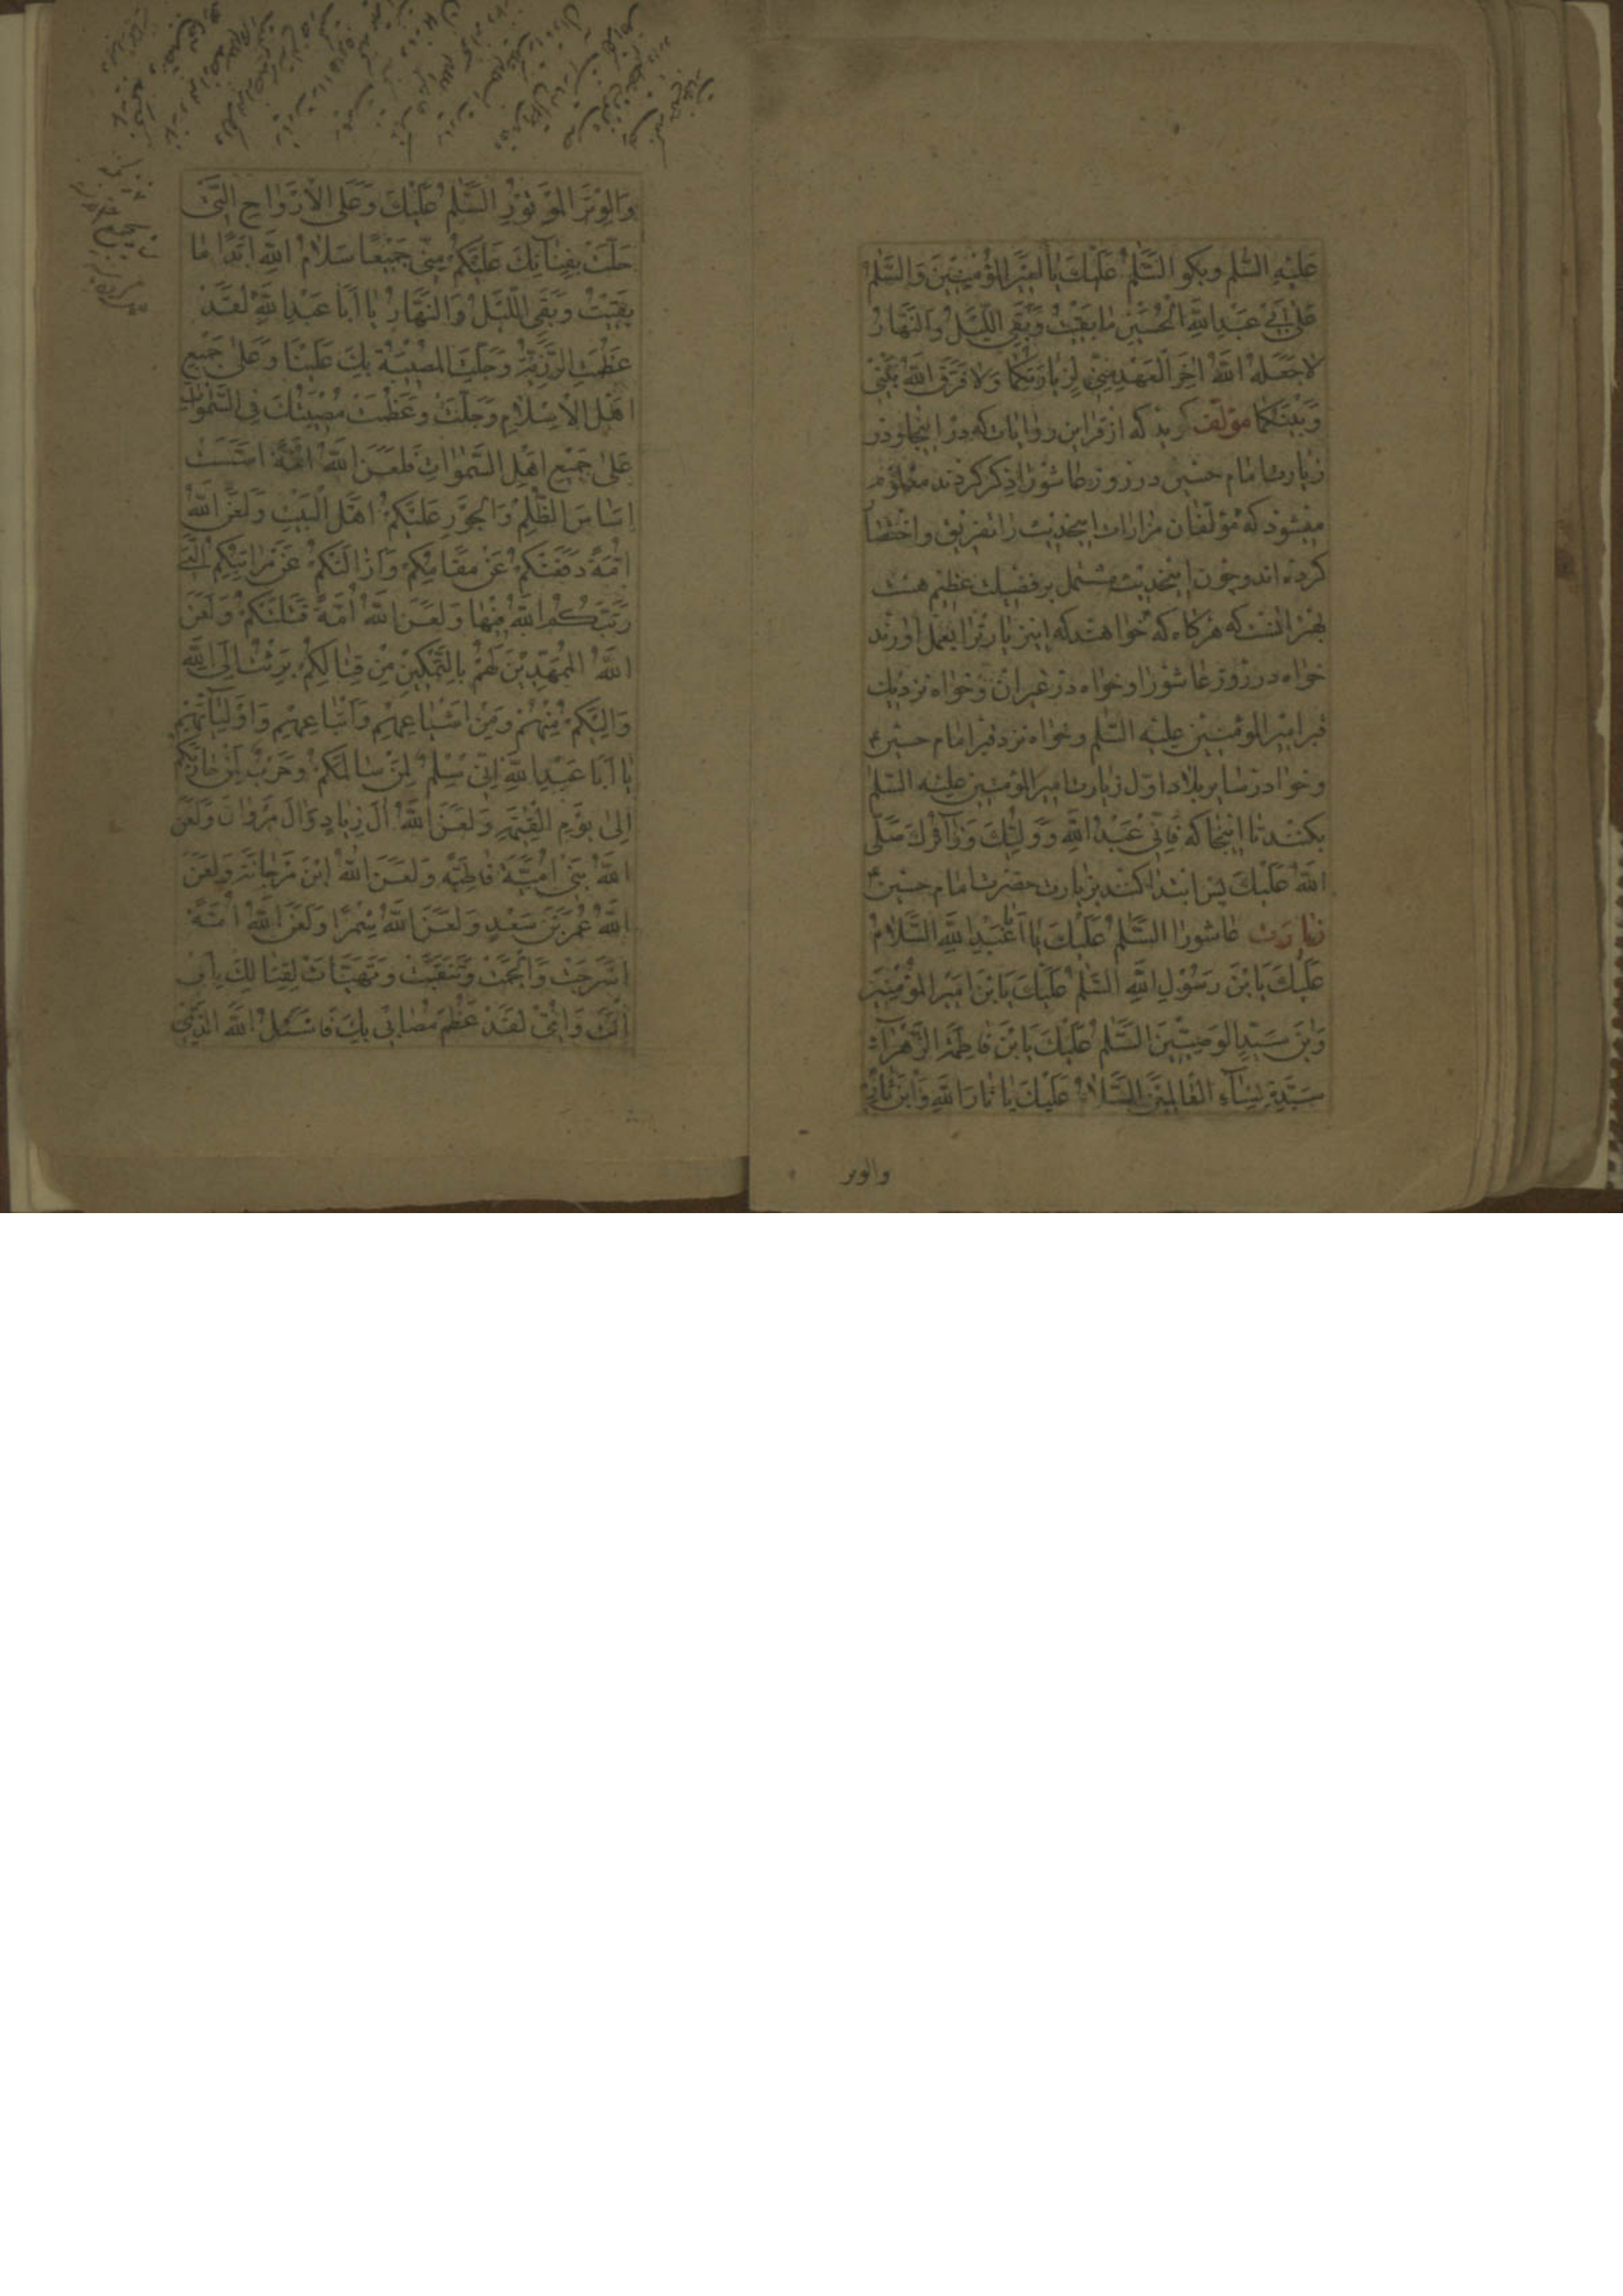 عَلَيْهِ السَّلم وبكو السَّلمُ عَلَيْكَ يٰا اَمٖيرَ المُؤْمِنٖينَ وَالسَّلمُ
عَلىٰ اَبٖي عَبْدِاللّٰهِ الْحُسَيْنِ مٰا بَقٖيتُ وَبَقِيَ اللَّيْلُ وَالنَّهٰارُ
لاٰجَعَلَهُ اللّٰهُ اٰخِرَ الْعَهْدِ مِنّٖي لِزِيٰارَتِكُمٰا وَلاٰ فَرَّقَ اللّٰهُ بَيْنٖي
وَبَيْنَكُمٰا مؤلف كريد كه از قراين روايات كه در اينجا و در
زيارت امام حسين در روز عاشورا ذكر كردند معلوم
ميشود كه مؤلفان مزارات اينحديث را تفريق واختصا
كرده اند وچون اينحديث مشتمل برفضيلت عظيم هست
بهتر انست كه هركاه كه خواهند كه اين زيارت را بعمل اورند
خواه در روز عاشورا وخواه در غير ان وخواه نزديك
قبر امير المؤمنين عليه السلم وخواه نزد قبر امام حسين ع
وخواه در ساير بلاد اول زيارت امير المؤمنين عليه السلم
بكنند تا اينجا كه فَاِنّٖي عَبْدُ اللّٰهِ وَوَلِيُّكَ وَزٰآئِرُكَ صَلَّى
اللّٰهُ عَلَيْكَ پس ابتدا كنند بزيارت حضرت امام حسين ع
زيارت عاشورا السَّلمُ عَلَيْكَ يٰا اَبٰا عَبْدِ اللّٰهِ السَّلاٰمُ
عَلَيْكَ يَابْنَ رَسُوْلِ اللّٰهِ السَّلمُ عَلَيْكَ يَابْنَ اَمٖيرِ الْمُؤْمِنٖينَ
وَابْنَ سَيِّدِ الْوَصِيّٖينَ السَّلمُ عَلَيْكَ يَابْنَ فٰاطِمَةَ الزَّهْرٰآءِ
سَيِّدَةِ نِسٰآءِ الْعٰالَمٖينَ السَّلاٰمُ عَلَيْكَ يٰا ثٰارَ اللّٰهِ وَابْنَ ثٰارِهٖ
والوتر
وَالْوِتْرَ الْمَوْتُوْرَ السَّلمُ عَلَيْكَ وَعَلَى الْاَرْوٰاحِ الَّتٖي
حَلَّتْ بِفِنٰآئِكَ عَلَيْكُمْ مِنّٖي جَمٖيعًا سَلاٰمُ اللّٰهِ اَبَدًا مٰا
بَقٖيتُ وَبَقِيَ اللَّيْلُ وَالنَّهٰارُ يٰا اَبٰا عَبْدِاللّٰهِ لَقَدْ
عَظُمَتِ الرَّزِيَّةُ وَجَلَّتِ الْمُصٖيبَةُ بِكَ عَلَيْنٰا وَعَلىٰ جَمٖيعِ
اَهْلِ الْاِسْلاٰمِ وَجَلَّتْ وَعَظُمَتْ مُصٖيبَتُكَ فِي السَّمٰوٰاتِ
عَلىٰ جَمٖيعِ اَهْلِ السَّمٰوٰاتِ فَلَعَنَ اللّٰهُ اُمَّةً اَسَّسَتْ
اَسٰاسَ الظُّلْمِ وَالْجَوْرِ عَلَيْكُمْ اَهْلَ الْبَيْتِ وَلَعَنَ اللّٰهُ
اُمَّةً دَفَعَتْكُمْ عَنْ مَقٰامِكُمْ وَاَزٰالَتْكُمْ عَنْ مَرٰاتِبِكُمُ الَّتٖي
رَتَّبَكُمُ اللّٰهُ فٖيهٰا وَلَعَنَ اللّٰهُ اُمَّةً قَتَلَتْكُمْ وَلَعَنَ
اللّٰهُ الْمُمَهِّدٖينَ لَهُمْ بِالتَّمْكٖينِ مِنْ قِتٰالِكُمْ بَرِئْتُ اِلَى اللّٰهِ
وَاِلَيْكُمْ مِنْهُمْ وَمِنْ اَشْيٰاعِهِمْ وَاَتْبٰاعِهِمْ وَاَوْلِيٰآئِهِمْ
يٰا اَبٰا عَبْدِ اللّٰهِ اِنّٖي سِلْمٌ لِمَنْ سٰالَمَكُمْ وَحَرْبٌ لِمَنْ حٰارَبَكُمْ
اِلىٰ يَوْمِ الْقِيٰمَةِ وَلَعَنَ اللّٰهُ اٰلَ زِيٰادٍ وَاٰلَ مَرْوٰانَ وَلَعَنَ
اللّٰهُ بَنٖي اُمَيَّةَ قٰاطِبَةً وَلَعَنَ اللّٰهُ ابْنَ مَرْجٰانَةَ وَلَعَنَ
اللّٰهُ عُمَرَ بْنَ سَعْدٍ وَلَعَنَ اللّٰهُ شِمْرًا وَلَعَنَ اللّٰهُ اُمَّةً
اَسْرَجَتْ وَاَلْجَمَتْ وَتَنَقَّبَتْ وَتَهَيَّاَتْ لِقِتٰالِكَ بِاَبٖي
اَنْتَ وَاُمّٖي لَقَدْ عَظُمَ مُصٰابٖي بِكَ فَاَسْئَلُ اللّٰهَ الَّذٖي